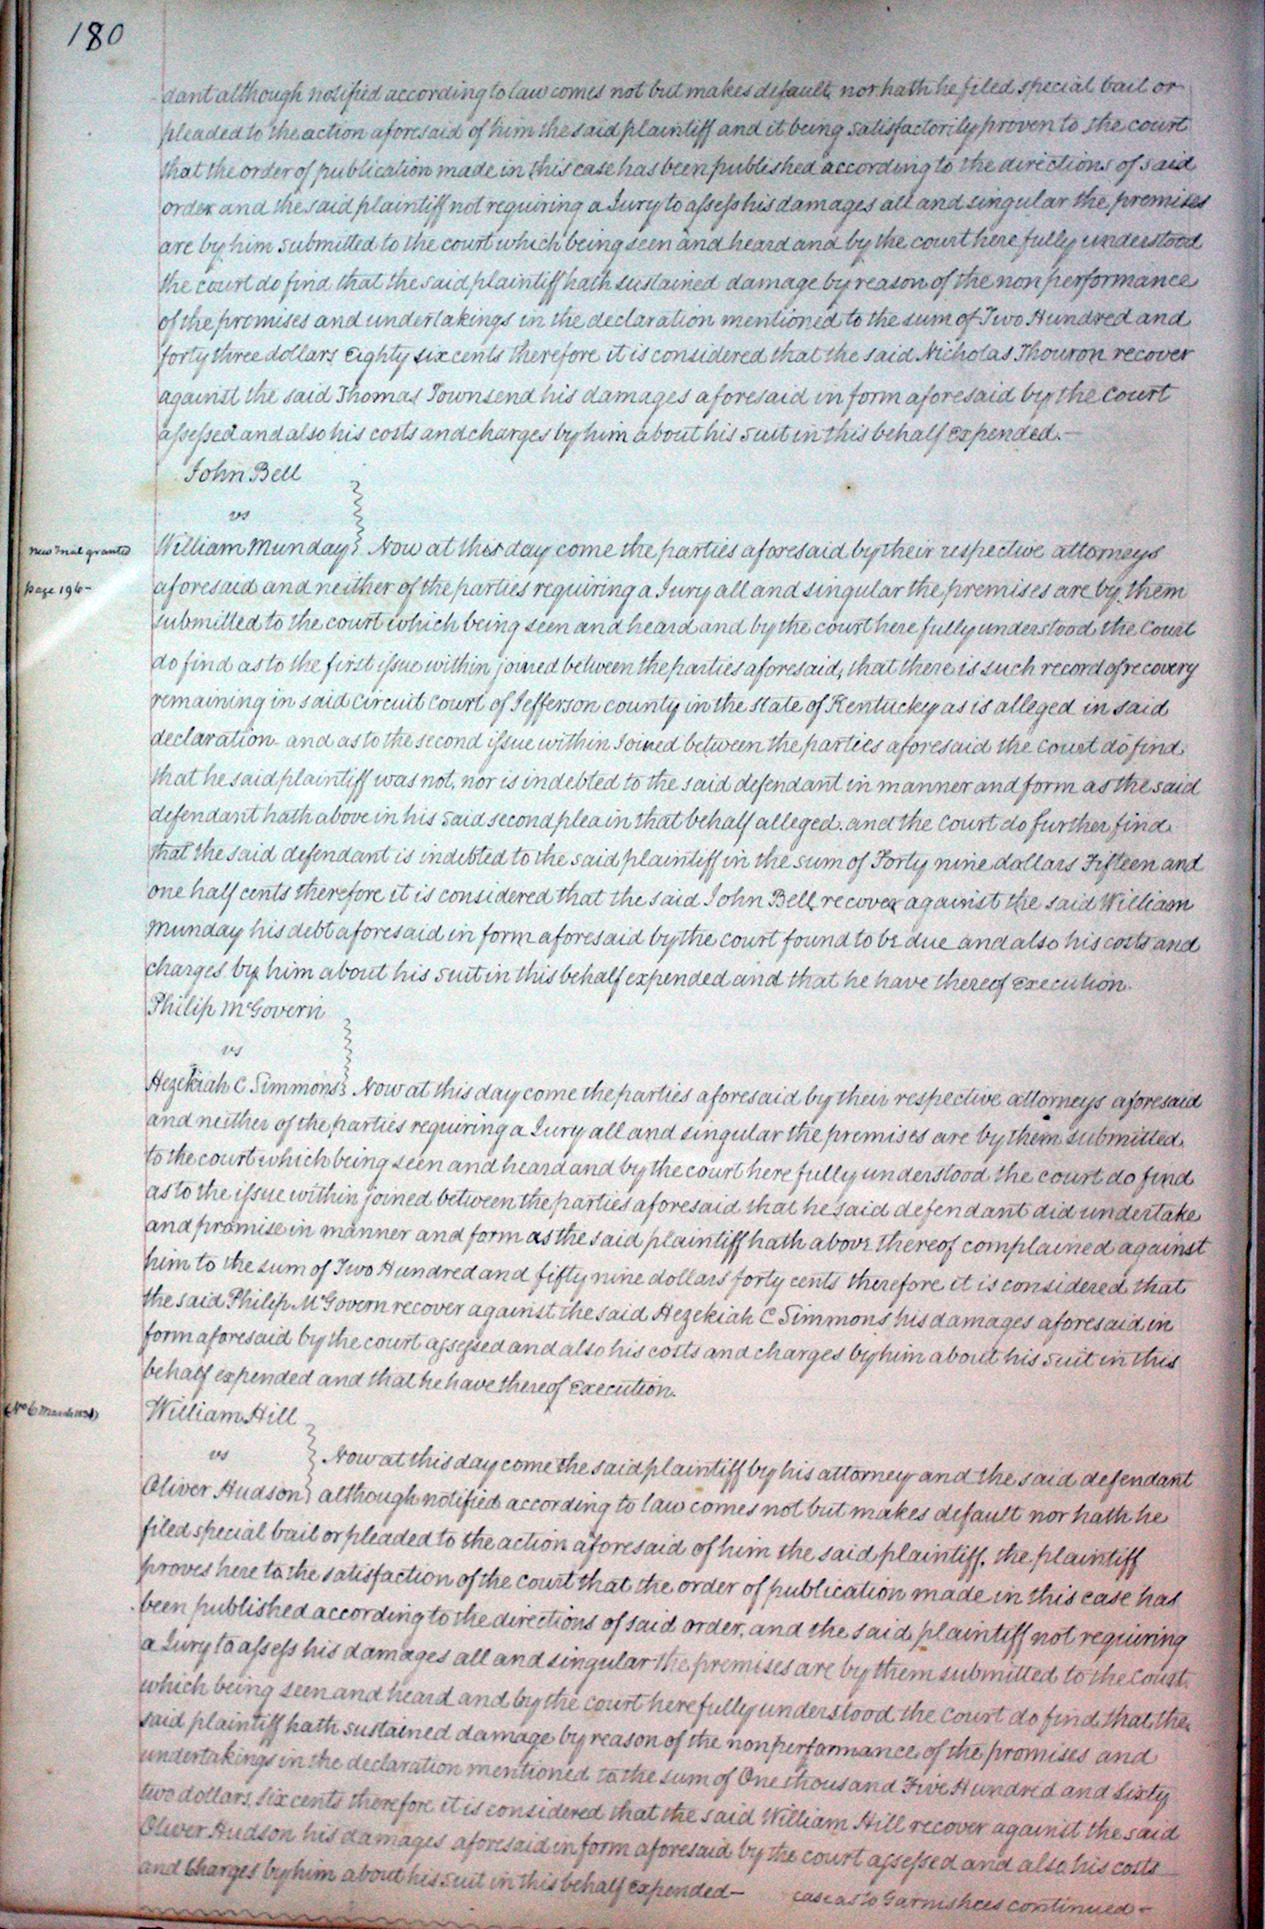 180
dant although notified according to law comes not but makes default nor hath he filed special bail or
pleaded to the action aforesaid of him the said plaintiff and it being satisfactorily proven to the court
that the order of publication made in this case has been published according to the directions of said
order and the said plaintiff not requiring a Jury to assess his damages all and singular the premises
are by him submitted to the court which being seen and heard and by the court here fully understood
the court do find that the said plaintiff hath sustained damage by reason of the non performance
of the promises and undertakings in the declaration mentioned to the sum of Two Hundred and
forty three dollars Eighty six cents therefore it is considered that the said Nicholas Thouron recover
against the said Thomas Townsend his damages aforesaid in form aforesaid by the Court
assessed and also his costs and charges by him about his suit in this behalf expended.—
John Bell
vs
New Trial granted
page 196-
William Munday Now at this day come the parties aforesaid by their respective attorneys
aforesaid and neither of the parties requiring a Jury all and singular the premises are by them
submitted to the court which being seen and heard and by the court here fully understood the Court
do find as to the first issue within joined between the parties aforesaid, that there is such record of recovery
remaining in said circuit court of Jefferson county in the State of Kentucky as is alleged in said
declaration. and as to the second issue within Joined between the parties aforesaid the court do find
that he said plaintiff was not, nor is indebted to the said defendant in manner and form as the said
defendant hath above in his said second plea in that behalf alleged. and the Court do further find
that the said defendant is indebted to the said plaintiff in the sum of Forty nine dollars Fifteen and
one half cents therefore it is considered that the said John Bell recover against the said William
Munday his debt aforesaid in form aforesaid by the court found to be due and also his costs and
charges by him about his suit in this behalf expended and that he have thereof Execution.
Philip McGovern
vs
Hezekiah C Simmons Now at this day come the parties aforesaid by their respective attorneys aforesaid
and neither of the parties requiring a Jury all and singular the premises are by them submitted
to the court which being seen and heard and by the court here fully understood the court do find
as to the issue within joined between the parties aforesaid that he said defendant did undertake
and promise in manner and form as the said plaintiff hath above thereof complained against
him to the sum of Two Hundred and fifty nine dollars forty cents therefore it is considered that
the said Philip McGovern recover against the said Hezekiah C Simmons his damages aforesaid in
form aforesaid by the court assessed and also his costs and charges by him about his suit in this
behalf expended and that he have thereof Execution.
William Hill
vs Now at this day come the said plaintiff by his attorney and the said defendant
Oliver Hudson although notified according to law comes not but makes default nor hath he
filed special bail or pleaded to the action aforesaid of him the said plaintiff. the plaintiff
proves here to the satisfaction of the court that the order of publication made in this case has
been published according to the directions of said order. and the said plaintiff not requiring
a Jury to assess his damages all and singular the premises are by them submitted to the Court
which being seen and heard and by the court here fully understood the court do find that the
said plaintiff hath sustained damage by reason of the nonperformance of the promises and
undertakings in the declaration mentioned to the sum of One thousand Five Hundred and Sixty
two dollars six cents therefore it is considered that the said William Hill recover against the said
Oliver Hudson his damages aforesaid in form aforesaid by the court assessed and also his costs
and Charges by him about his suit in this behalf expended— case as to Garnishees continued—